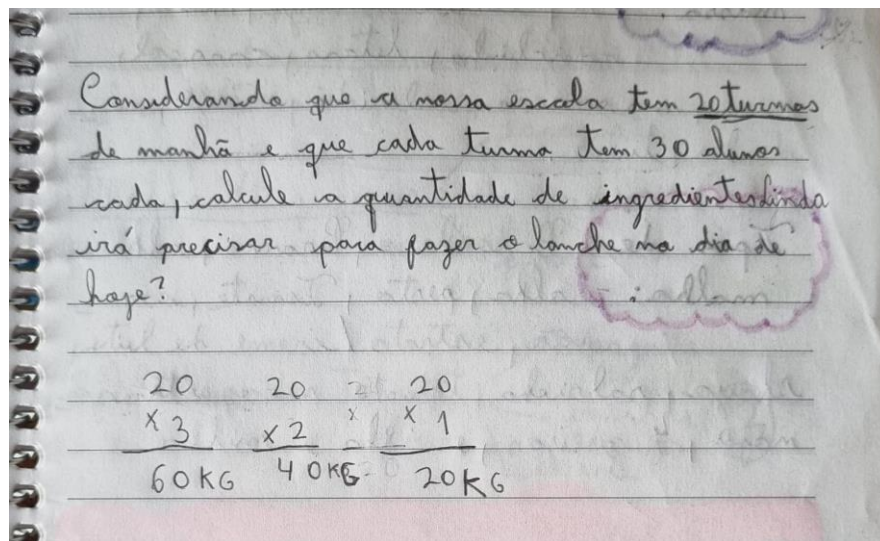 Considerando que a nossa escola tem 20 turmas
de manhã e que cada turma tem 30 alunos
cada, calcule a quantidade de ingredientes Linda
irá precisar para fazer o lanche na dia de
hoje?
20 20 20
x 3 x 2 x 1
60 KG 40 KG 20 KG